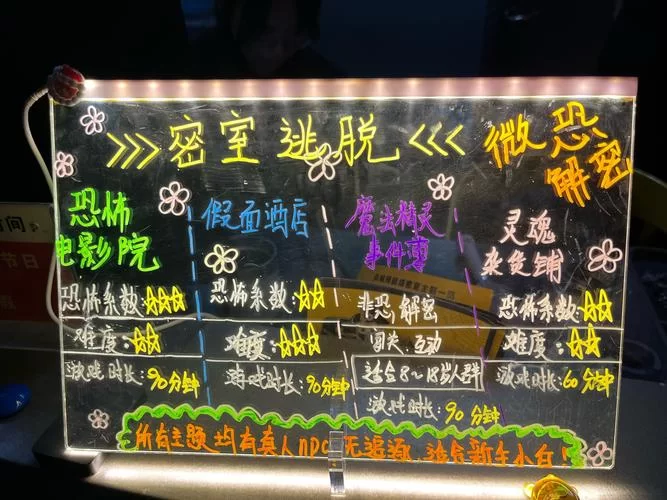 >>> 密室逃脱 <<<
微恐
解密
恐怖
电影院
恐怖系数:☆☆☆
难度:☆☆
游戏时长:90分钟
假面酒店
恐怖系数:☆☆
难度:☆☆☆
游戏时长:90分钟
魔法精灵
事件薄
非恐解密
闯关、互动
适合8~18岁人群
游戏时长:90分钟
灵魂
杂货铺
恐怖系数:☆☆
难度:☆☆
游戏时长:60分钟
所有主题均有真人NPC 无追逐、适合新手小白!
节日